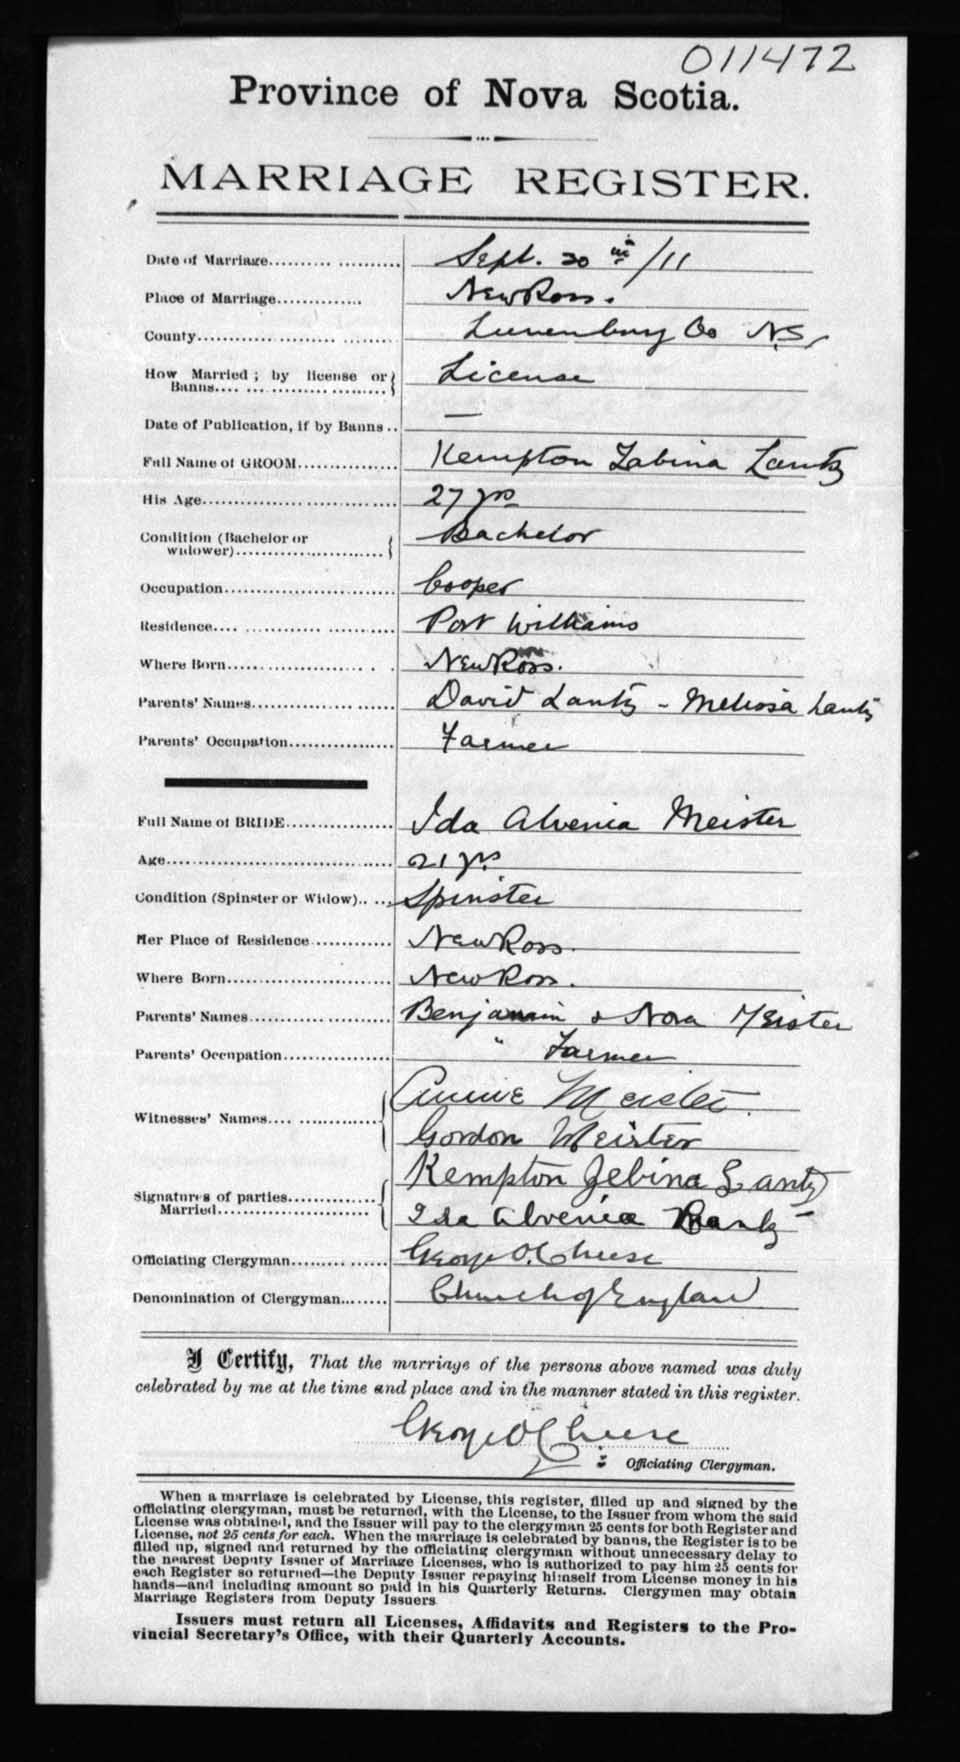 011472
Province of Nova Scotia.
MARRIAGE REGISTER.
Date of Marriage.......... Sept. 20th /11
Place of Marriage............. New Ross.
County.................... Lunenburg Co N.S.
How Married ; by license or
Banns.................... License
Date of Publication, if by Banns .. —
Full Name of GROOM............... Kempton Zabina Lantz
His Age.............................. 27 yrs
Condition (Bachelor or
widower)...................... Bachelor
Occupation.......................... Cooper
Residence.... Port Williams
Where Born.... New Ross.
Parents' Names..................... David Lantz - Melissa Lantz
Parents' Occupation................ Farmer
Full Name of BRIDE................ Ida Alvenia Meister
Age.................................. 21 yrs
Condition (Spinster or Widow).. .. Spinster
Her Place of Residence ............ New Ross.
Where Born......................... New Ross.
Parents' Names...................... Benjamin & Nora Meister
Parents' Occupation................ " Farmer
Witnesses' Names.... ............... Annie Meister.
Gordon Meister
Signatures of parties.............. Kempton Zebina Lantz
Married....................... Ida Alvenia Lantz
Officiating Clergyman.............. George O. Cheese
Denomination of Clergyman........ Church of England
I Certify, That the marriage of the persons above named was duly
celebrated by me at the time and place and in the manner stated in this register.
George O Cheese
Officiating Clergyman.
When a marriage is celebrated by License, this register, filled up and signed by the
officiating clergyman, must be returned, with the License, to the Issuer from whom the said
License was obtained, and the Issuer will pay to the clergyman 25 cents for both Register and
License, not 25 cents for each. When the marriage is celebrated by banns, the Register is to be
filled up, signed and returned by the officiating clergyman without unnecessary delay to
the nearest Deputy Issuer of Marriage Licenses, who is authorized to pay him 25 cents for
each Register so returned—the Deputy Issuer repaying himself from License money in his
hands—and including amount so paid in his Quarterly Returns. Clergymen may obtain
Marriage Registers from Deputy Issuers
Issuers must return all Licenses, Affidavits and Registers to the Pro-
vincial Secretary's Office, with their Quarterly Accounts.